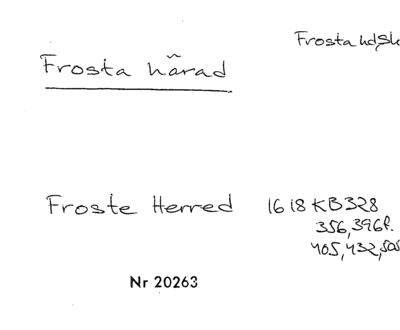 Frosta hd, Sk
Frosta härad
Froste Herred 1618 KB328
356, 396f.
405, 432, 505
Nr 20263